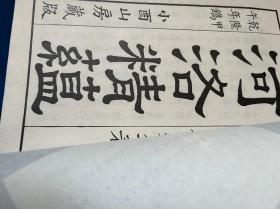 乾隆甲
午年鐫
小酉山房藏版
河洛精蘊